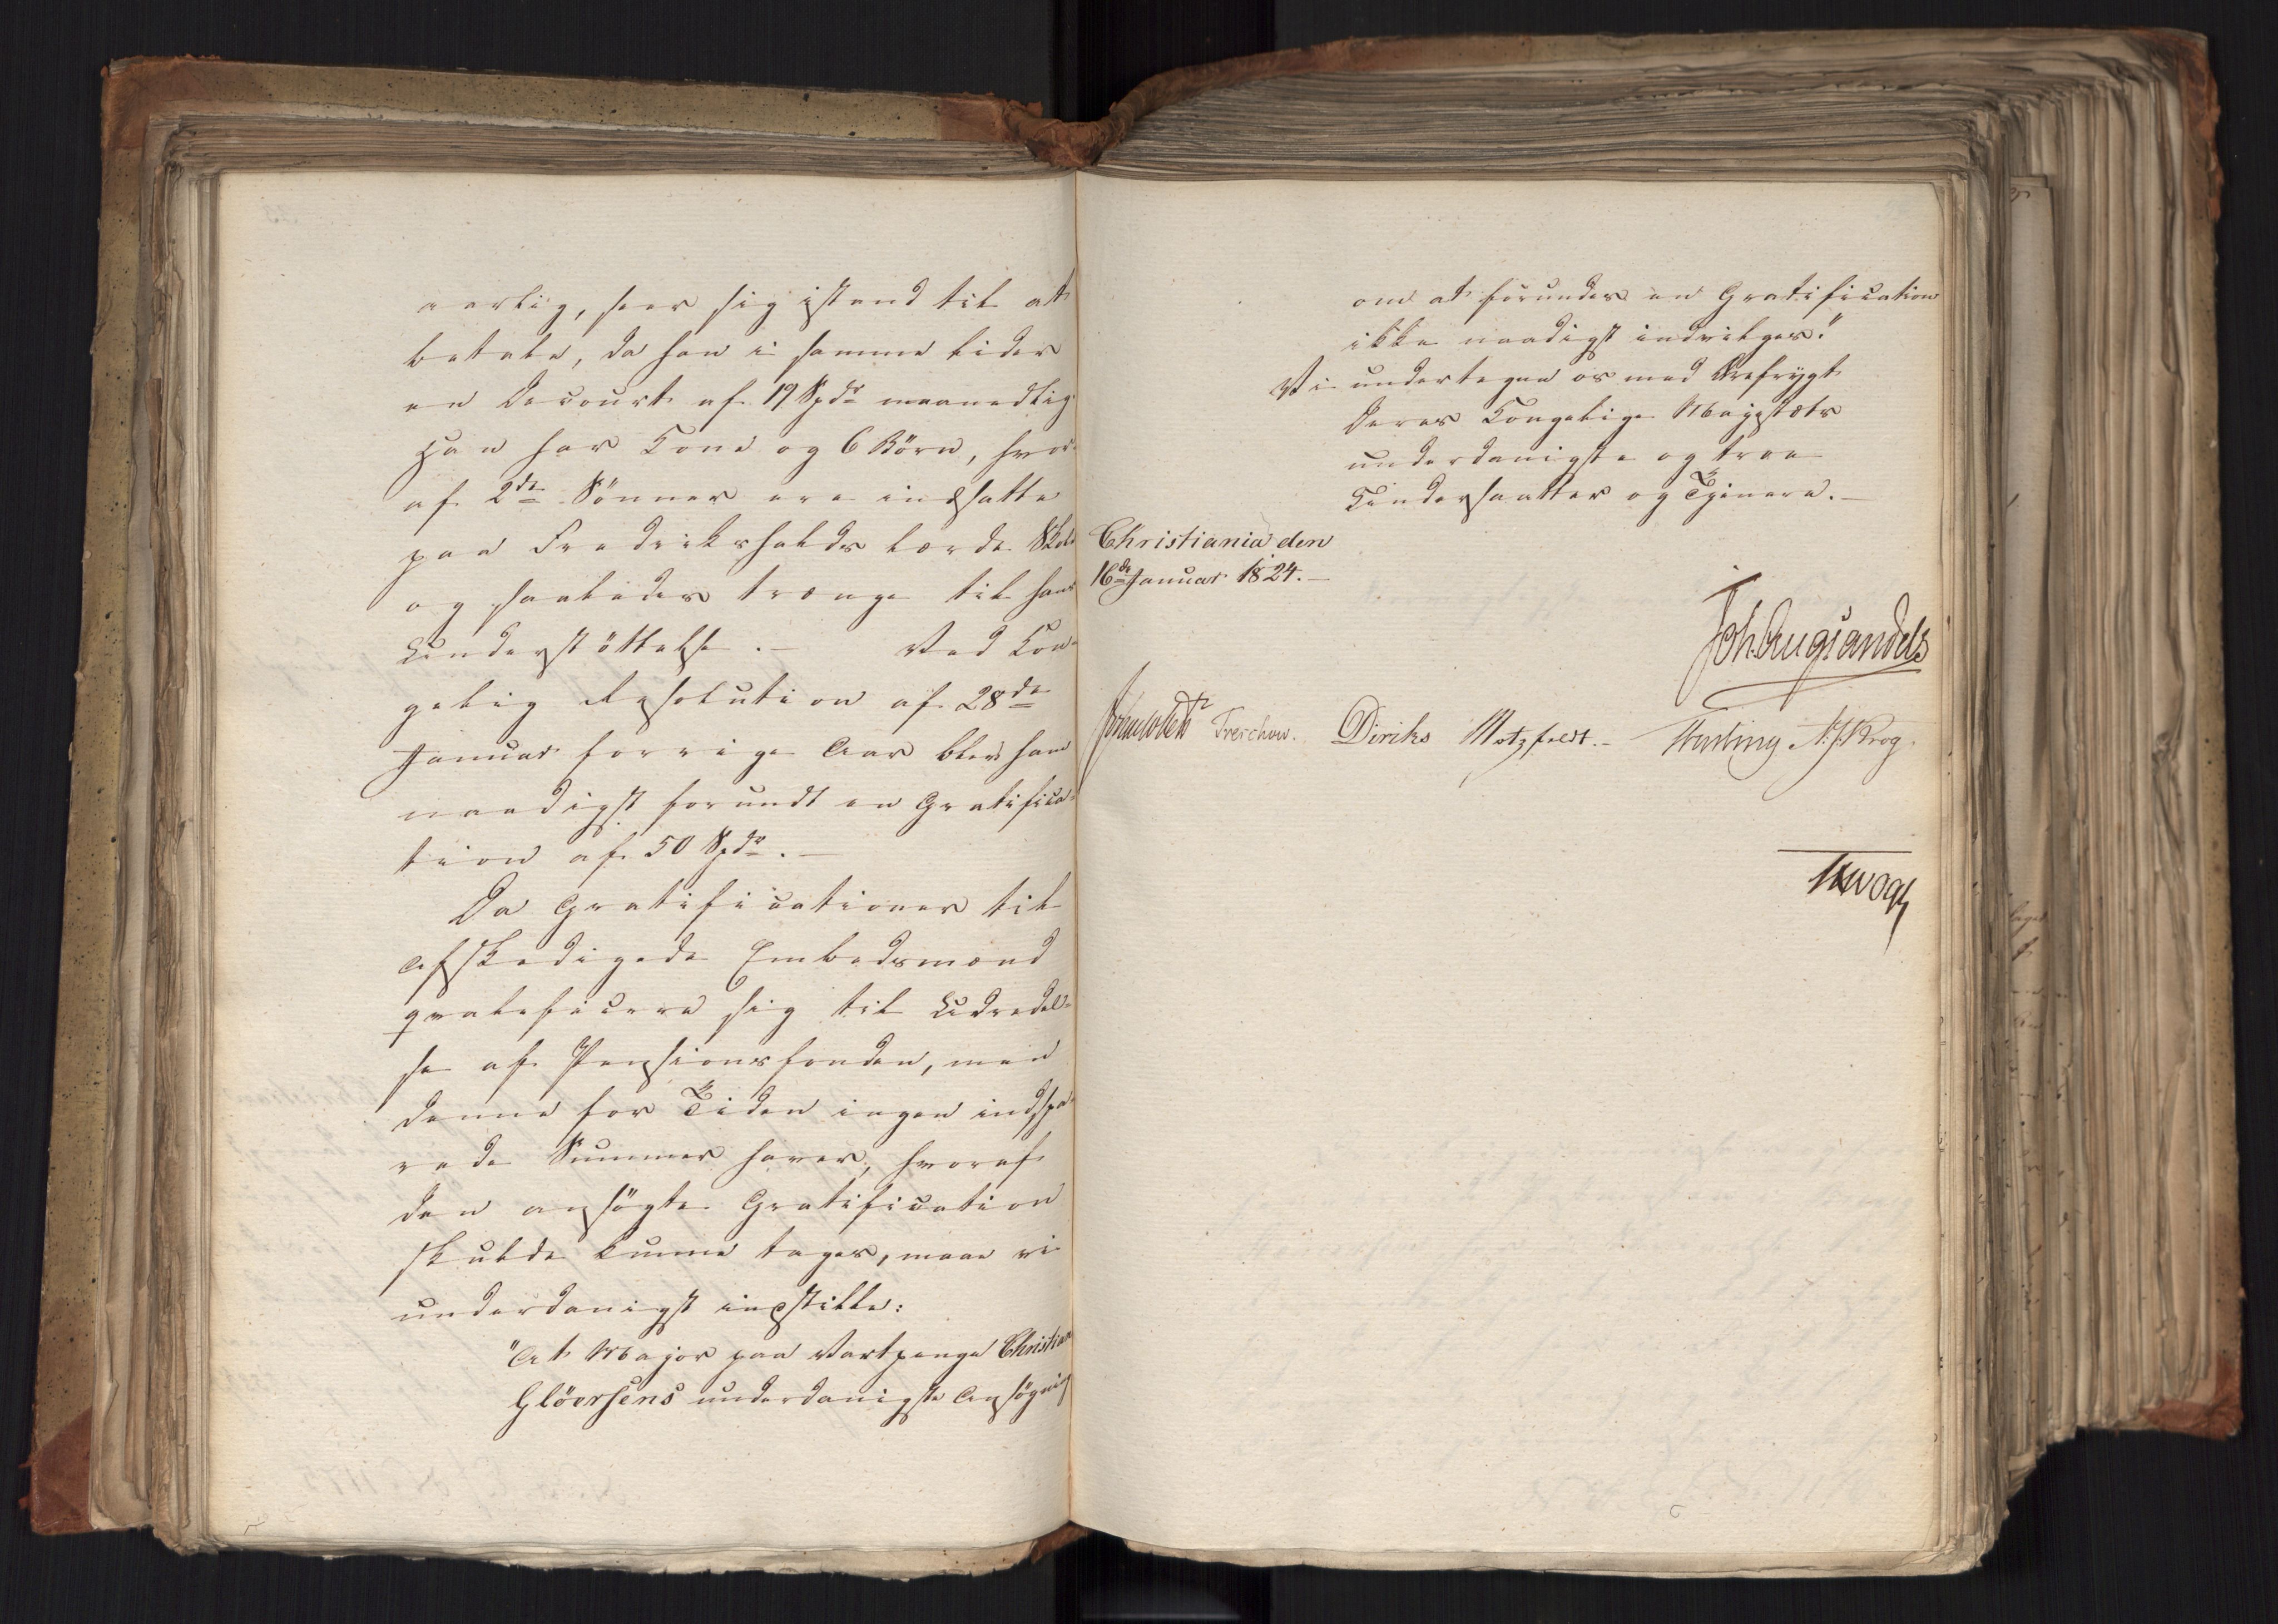 aarlig, seer sig istand til at
betale, da han i samme lider
en Decourt af 19 Spdr maanedlig
Han har Kone og 6 Börn, hvor-
af 2de Sönner ere indsatte
paa Fredrikshalds lærde Skole
og saaledes trænge til hans
Understöttelse. – Ved Kon-
gelig Resolution af 28de
Januar forrige Aar blev ham
naadigst forundt en Gratifica-
tion af 50 Spdr. –
Da Gratificationer til
afskedigede Embedsmænd
qvalificere sig til Udredel-
se af Pensionsfonden, men
denne for Tiden ingen indspa-
rede Summer haver, hvoraf
den ansögte Gratification
skulde kunne tages, maae vi
underdanigst indstille:
"At Major paa Vartpenge Christian
Glöersens underdanigste Ansögning
om at forundes en Gratification
ikke naadigst indvilges."
Vi undertegne os med Ærefrygt
Deres Kongelige Majestæts
underdanigste og troe
Undersaatter og Tjenere. –
Christiania den
16de Januar 1824. –
Joh. Aug. Sandels
Treschow. Diriks Motzfeldt. – N. J. Krog